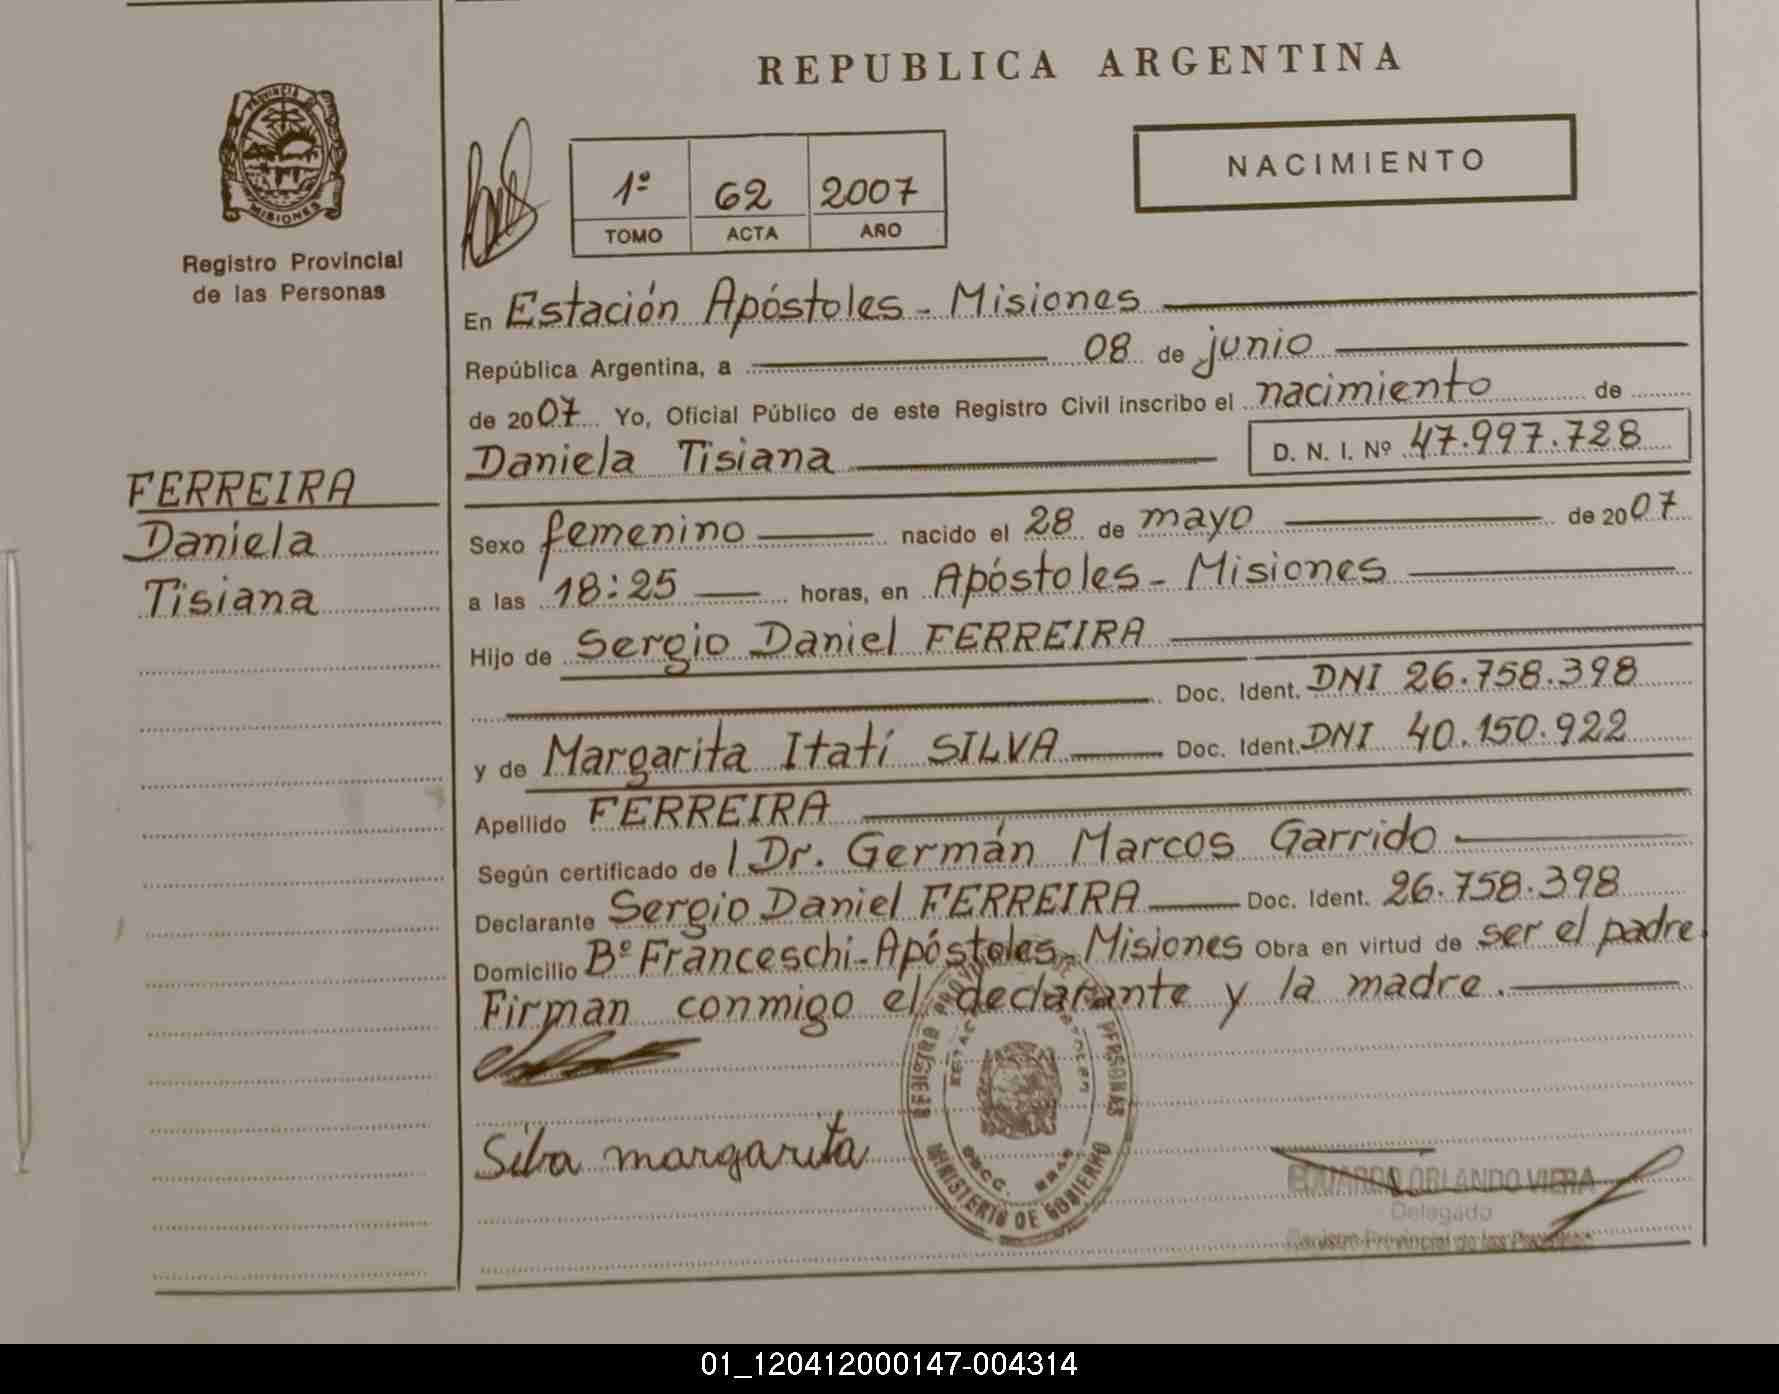 REPUBLICA ARGENTINA
PROVINCIA DE
MISIONES
Registro Provincial
de las Personas
1º 62 2007
TOMO ACTA AÑO
NACIMIENTO
En Estación Apóstoles - Misiones
República Argentina, a 08 de junio
de 2007 Yo, Oficial Público de este Registro Civil inscribo el nacimiento de
Daniela Tisiana D. N. I. Nº 47.997.728
FERREIRA
Daniela
Tisiana
Sexo femenino nacido el 28 de mayo de 2007
a las 18:25 horas, en Apóstoles - Misiones
Hijo de Sergio Daniel FERREIRA
Doc. Ident. DNI 26.758.398
y de Margarita Itatí SILVA Doc. Ident. DNI 40.150.922
Apellido FERREIRA
Según certificado de Dr. Germán Marcos Garrido
Declarante Sergio Daniel FERREIRA Doc. Ident. 26.758.398
Domicilio Bº Franceschi - Apóstoles - Misiones Obra en virtud de ser el padre.
Firman conmigo el declarante y la madre.
REGISTRO PERSONAS
MINISTERIO DE GOBIERNO
Silva margarita
EDUARDO ORLANDO VIERA
Delegado
Registro Provincial de las Personas
01_120412000147-004314